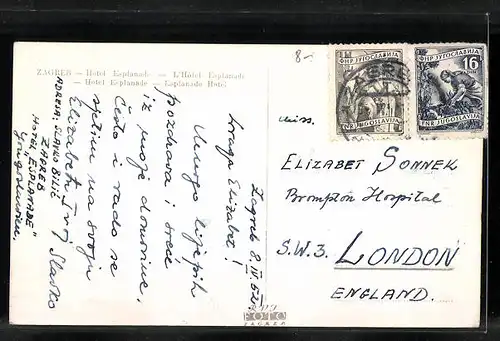 ZAGREB — Hotel Esplanade — L'Hôtel Esplanade
Hotel Esplanade — Esplanade Hotel
8-
Zagreb 8. IV 
Draga Elizabet!
Mnogo lijepih
pozdrava i sreće
iz moje domovine.
Često i rado se
sjetim na svoju
Elizabetu
Tvoj Slavko
ADRESA: SLAVKO BILIĆ
ZAGREB
HOTEL "ESPLANADE"
Yougoslavien.
ФНР ЈУГОСЛАВИЈА
FNR JUGOSLAVIJA
ФНР ЈУГОСЛАВИЈА
16
DIN
FNR JUGOSLAVIJA
ZAGREB
Miss.
ELIZABET SONNEK
Brompton Hospital
S.W.3. LONDON
ENGLAND.
FOTO
ZAGREB